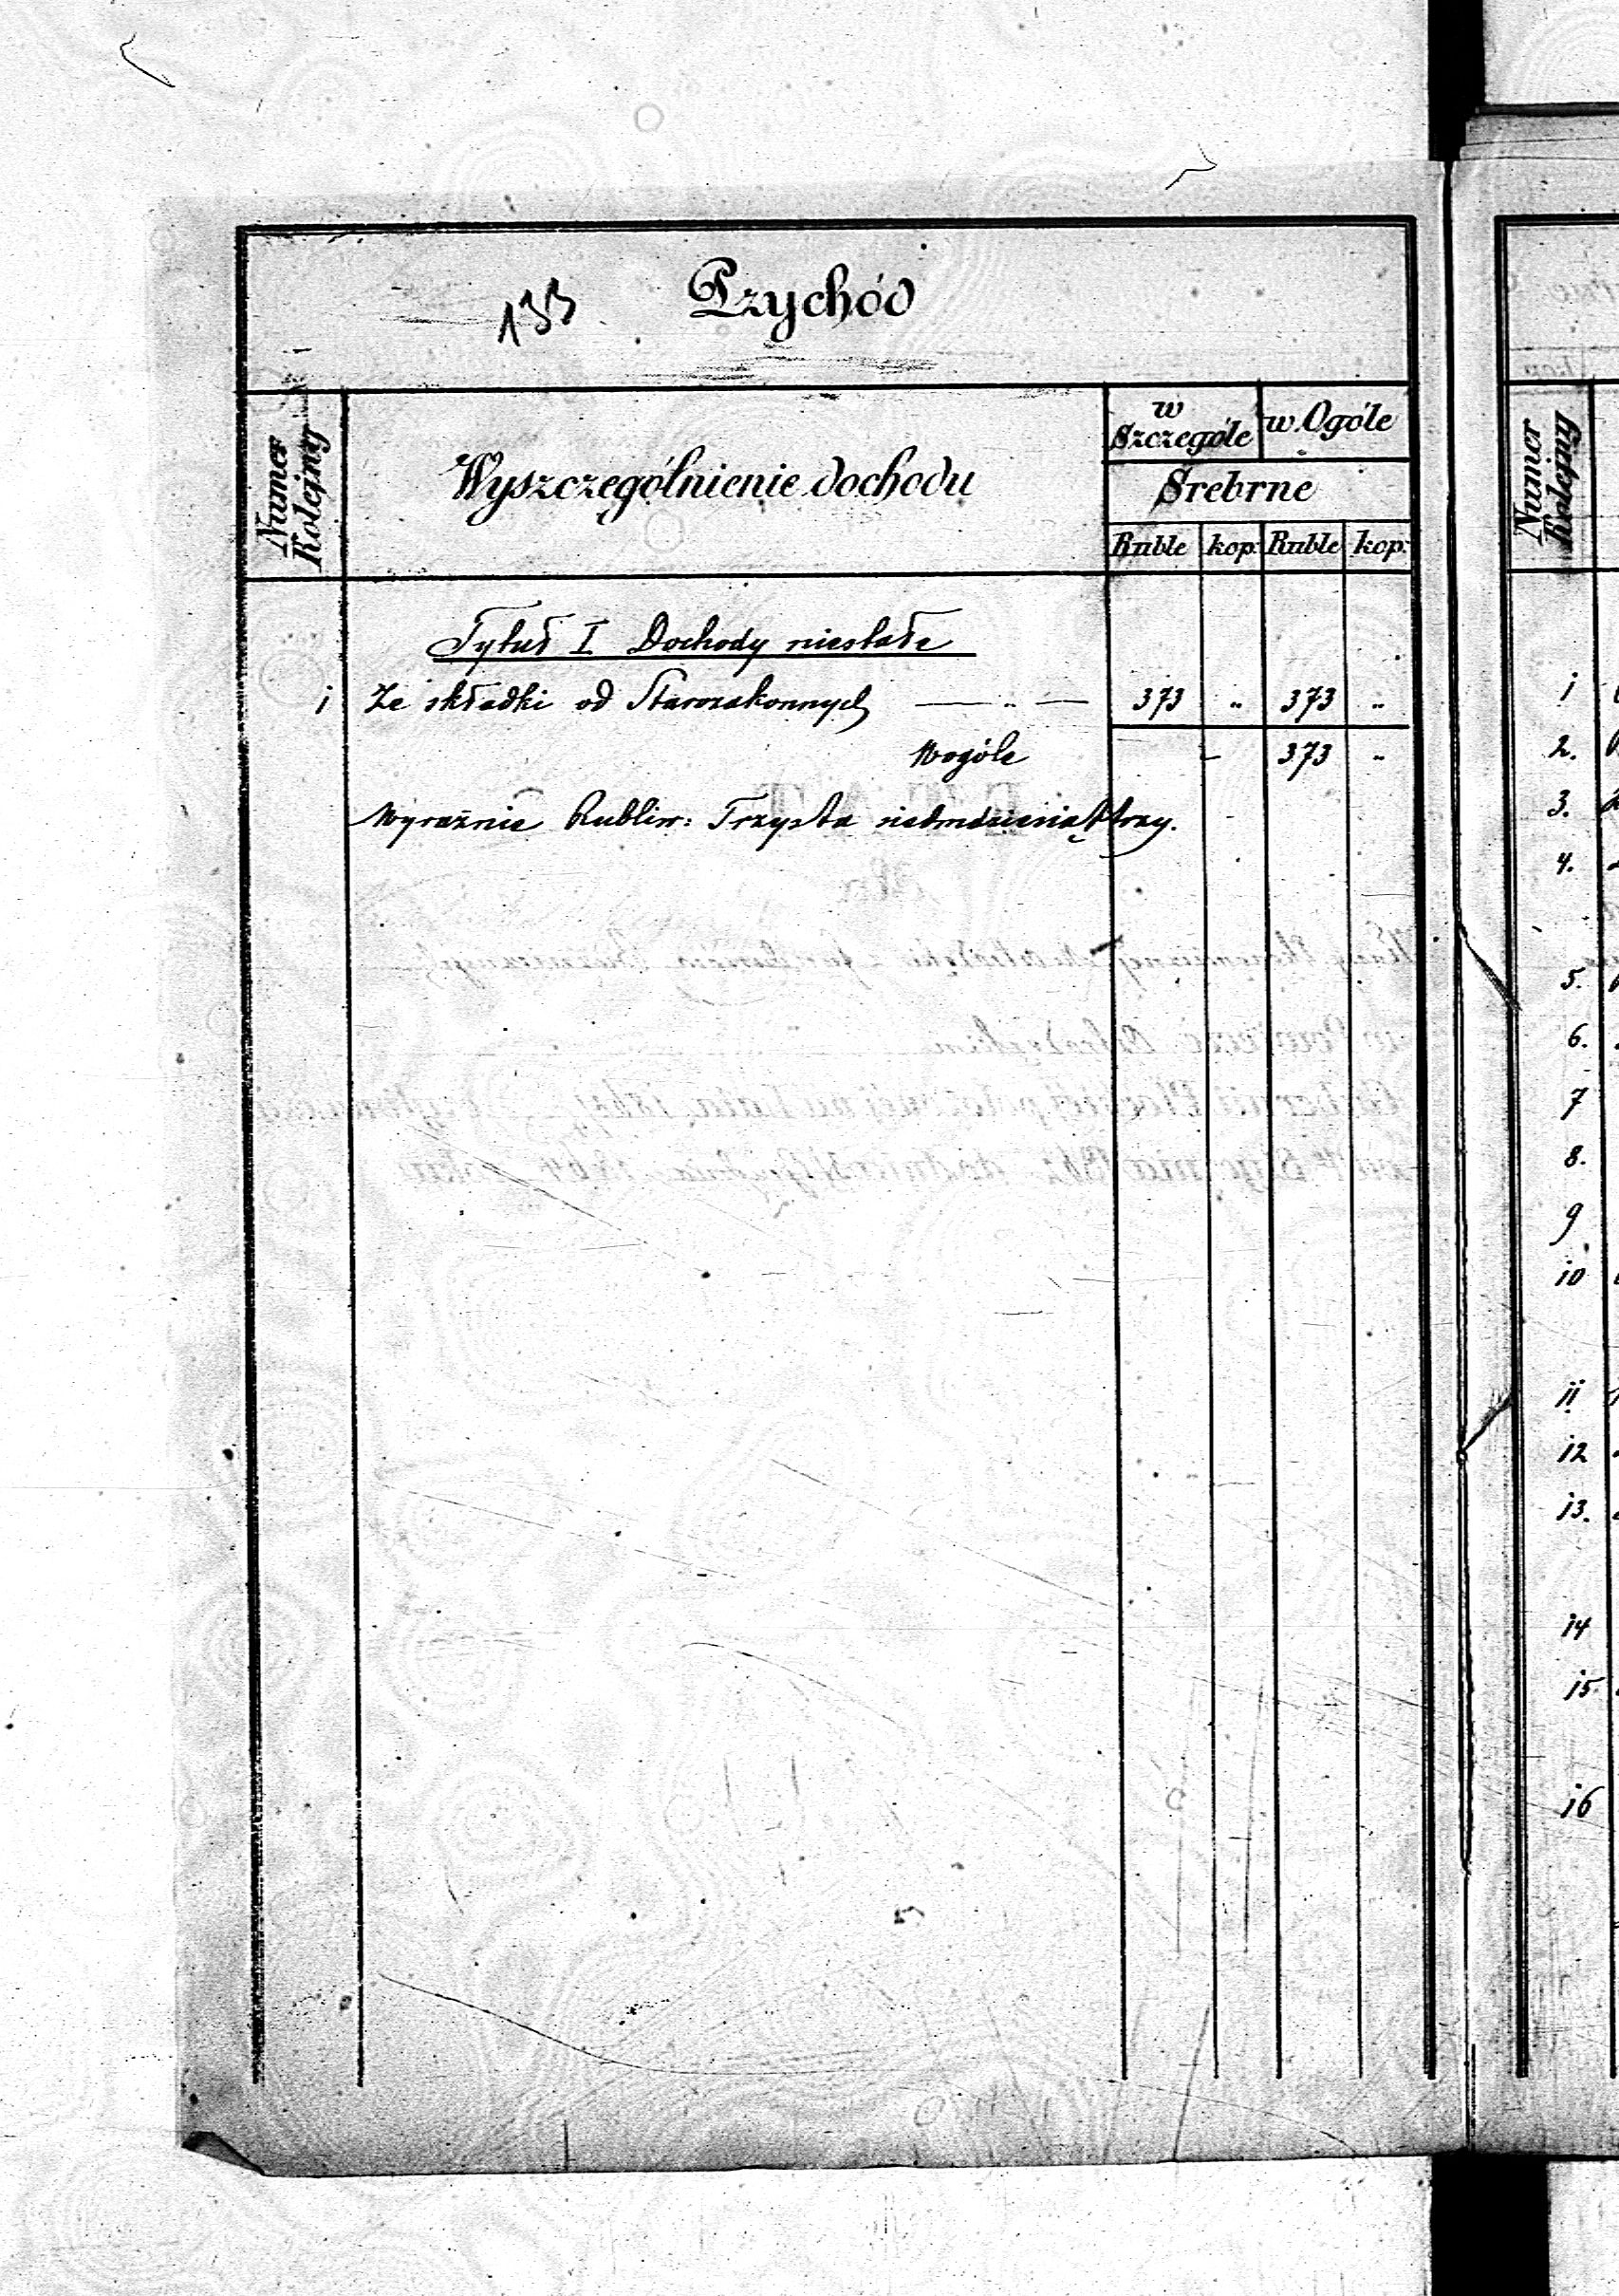 133
Przychód
Numer Kolejny
Wyszczególnienie dochodu
w Szczególe
w Ogóle
Srebrne
Ruble kop: Ruble kop:
Tytuł I Dochody niestałe
1 Ze składki od Starozakonnych — „ — 373 „ 373 „
Wogóle - 373 „
Wyraźnie Rubli sr: Trzysta siedmdziesiąt trzy.
Numer Kolejny
1
2.
3.
4.
5.
6.
7
8.
9
10
11
12
13.
14
15.
16